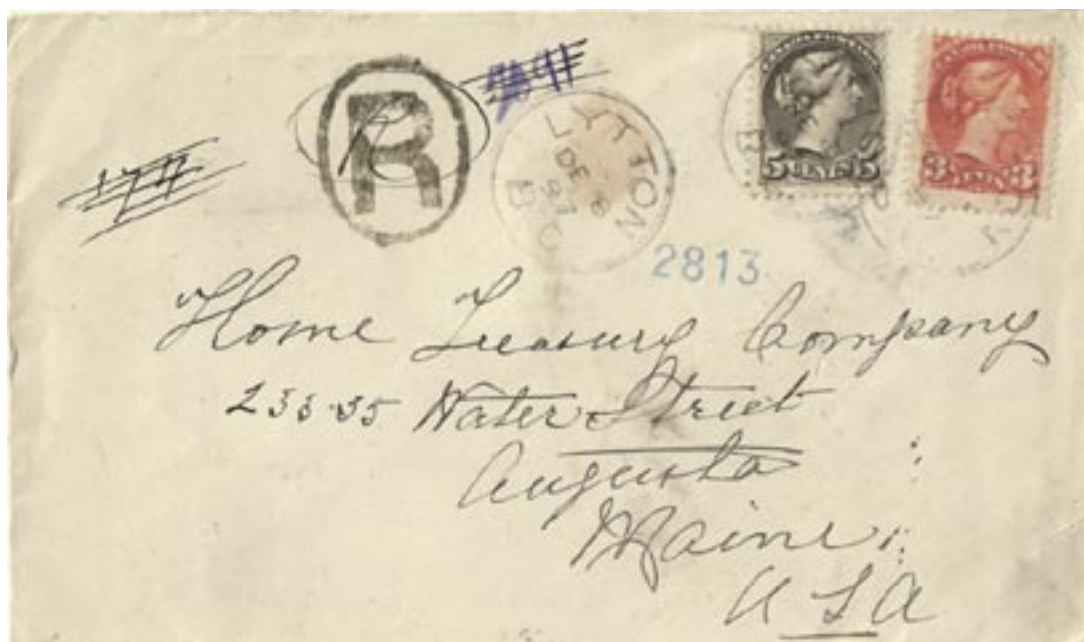 R
R
LYTTON
DE 6
97
B C
5 CENTS 5
3 CENTS 3
2813
Home Treasury Company
233-35 Water Street
Augusta
Maine
U S A